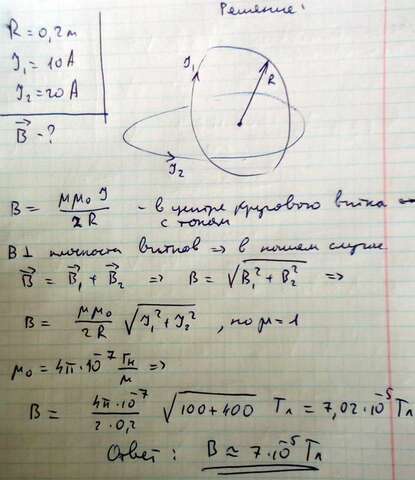 Решение:
R = 0,2 м
J₁ = 10 А
J₂ = 20 А
B⃗ - ?
J₁
R
J₂
B = μμ₀ J / 2R - в центре кругового витка с током
B ⊥ плоскости витков => в нашем случае
B⃗ = B⃗₁ + B⃗₂ => B = √(B₁² + B₂²) =>
B = μμ₀ / 2R √(J₁² + J₂²), но μ = 1
μ₀ = 4π·10⁻⁷ Гн/м =>
B = 4π·10⁻⁷ / 2·0,2 √(100+400) Тл = 7,02·10⁻⁵ Тл
Ответ: B ≃ 7·10⁻⁵ Тл